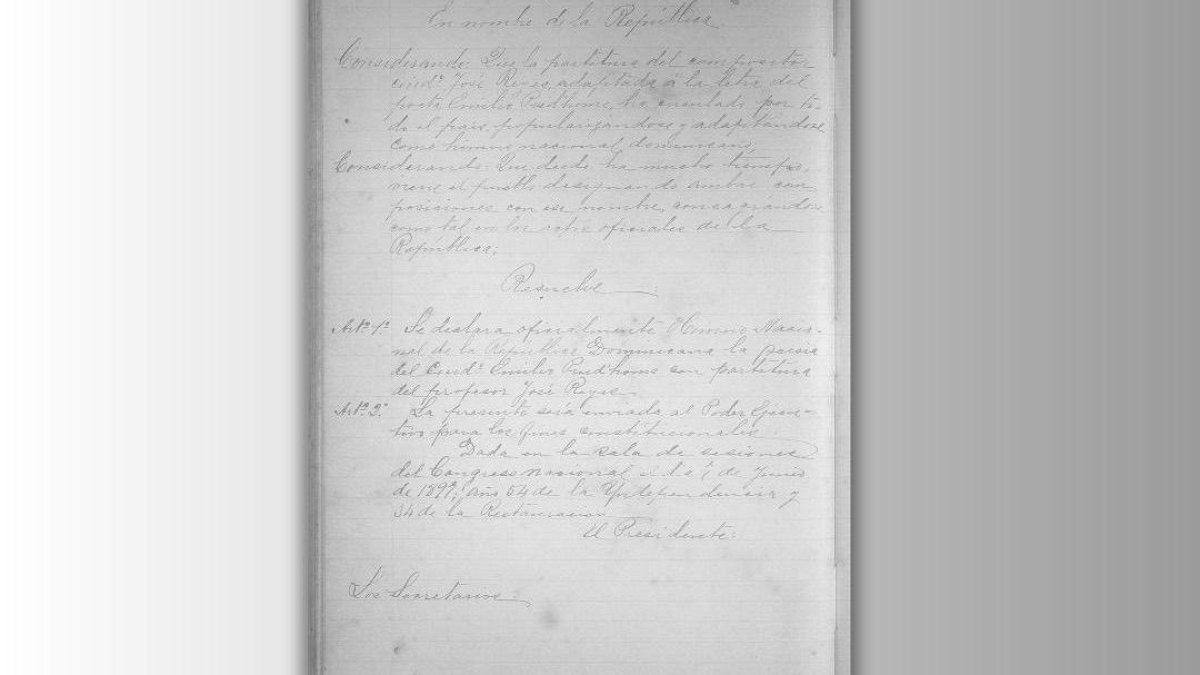 En nombre de la República
Considerando: Que la partitura del compositor
ciudº José Reyes, adaptada á la letra del
poeta Emilio Prudhome, ha circulado por to-
do el país, popularizándose y adaptándose
como himno nacional dominicano,
Considerando: Que desde ha mucho tiempo,
viene el pueblo designando ambas com
posiciones con ese nombre, consagrandose
como tal en los actos oficiales de la
República;
Resuelve
Artº 1º Se declara oficialmente Himno Nacio-
nal de la República Dominicana la poesía
del Ciudº Emilio Prudhome con partitura
del profesor José Reyes.
Artº 2º La presente será enviada al Poder Ejecu-
tivo para los fines constitucionales.
Dada en la sala de sesiones
del Congreso Nacional de Junio
de 1897, año 54 de la Yndependencia y
34 de la Restauracion
El Presidente:
Los Secretarios: